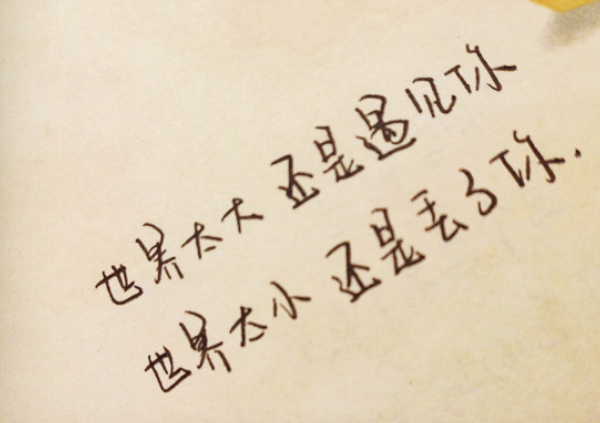 世界太大 还是遇见你
世界太小 还是丢了你.